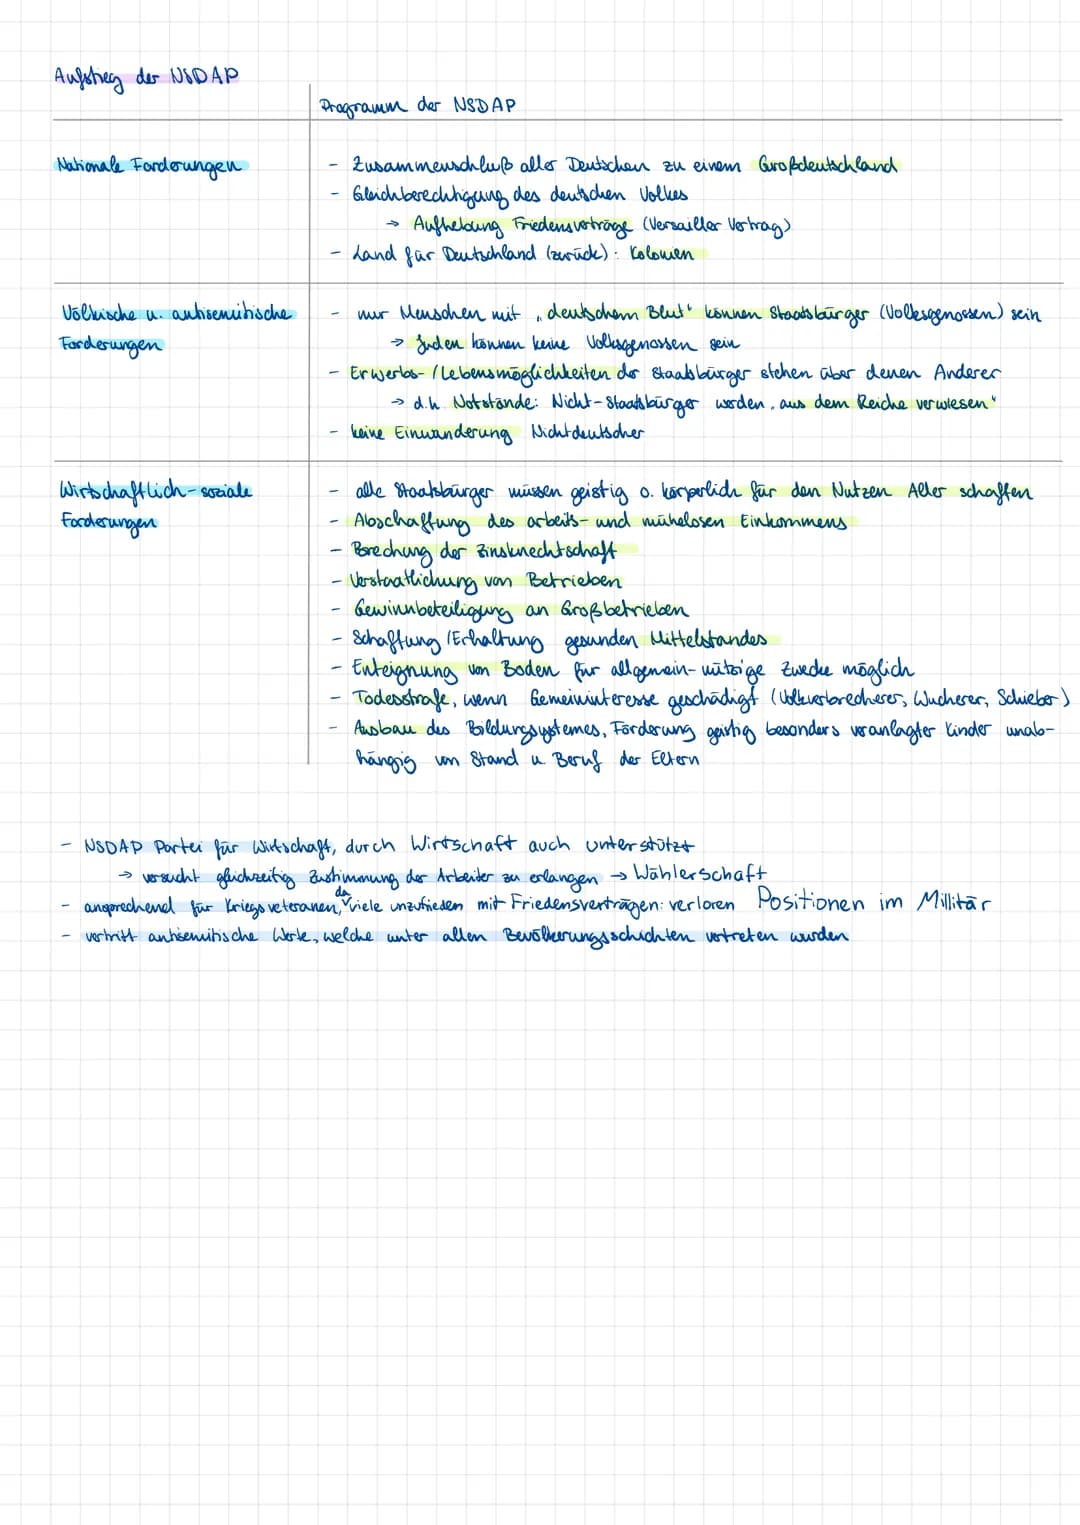 Aufstieg der NSDAP
Programm der NSDAP
Nationale Forderungen
- Zusammenschluß aller Deutschen zu einem Großdeutschland
- Gleichberechtigung des deutschen Volkes
→ Aufhebung Friedensverträge (Versailler Vertrag)
- Land für Deutschland (zurück): Kolonien
Völkische u. antisemitische
Forderungen
- nur Menschen mit „deutschem Blut“ können Staatsbürger (Volksgenossen) sein
→ Juden können keine Volksgenossen sein
- Erwerbs-/Lebensmöglichkeiten der Staatsbürger stehen über denen Anderer
→ d.h. Notstände: Nicht-Staatsbürger werden „aus dem Reiche verwiesen“
- keine Einwanderung Nichtdeutscher
Wirtschaftlich-soziale
Forderungen
- alle Staatsbürger müssen geistig o. körperlich für den Nutzen Aller schaffen
- Abschaffung des arbeits- und mühelosen Einkommens
- Brechung der Zinsknechtschaft
- Verstaatlichung von Betrieben
- Gewinnbeteiligung an Großbetrieben
- Schaffung/Erhaltung gesunden Mittelstandes
- Enteignung von Boden für allgemein-nützige Zwecke möglich
- Todesstrafe, wenn Gemeininteresse geschädigt (Volksverbrecherer, Wucherer, Schieber)
- Ausbau des Bildungsystemes, Förderung geistig besonders veranlagter Kinder unab-
hängig von Stand u. Beruf der Eltern
- NSDAP Partei für Wirtschaft, durch Wirtschaft auch unterstützt
→ versucht gleichzeitig Zustimmung der Arbeiter zu erlangen → Wählerschaft
- ansprechend für Kriegsveteranen, da viele unzufrieden mit Friedensverträgen: verloren Positionen im Millitär
- vertritt antisemitische Werte, welche unter allen Bevölkerungsschichten vertreten wurden